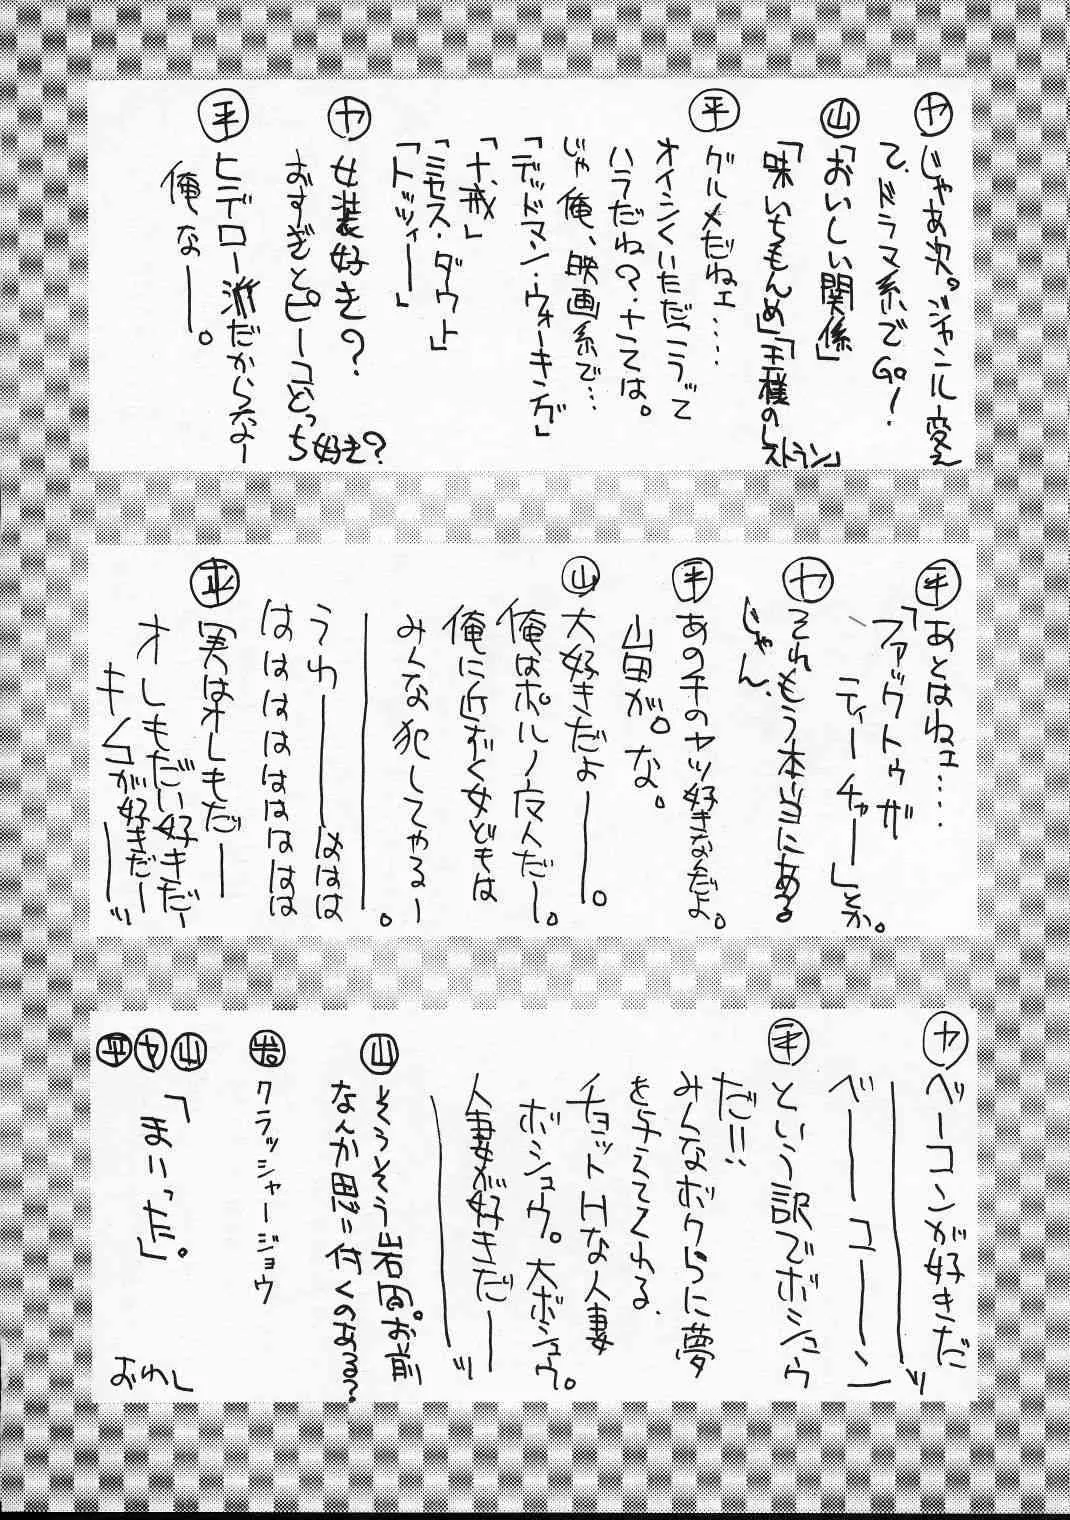 ヤ じゃあ次。ジャンル変え
て、ドラマ系でGo!
山 「おいしい関係」
「味いちもんめ」「王様のレストラン」
平 グルメだねェ‥‥
オイシくいただこうって
ハラだね?さては。
じゃ俺、映画系で…
「デッドマン・ウォーキング」
「十戒」
「ミセス・ダウト」
「トッツィー」
ヤ 女装好き?
おすぎとピーコどっち好き?
平 ヒデロー派だからなー
俺なー。
平 あとはねェ‥‥
「ファックトゥザ
ティーチャー」とか。
ヤ それもう本当にある
じゃん、
平 あの手のヤツ好きなんだよ。
山田が。な。
山 大好きだよー。
俺はポルノ魔人だー。
俺に近ずく女どもは
みんな犯してやるー
ー。
うわーははは
はははははははは
平 実はオレもだー
オレもだい好きだー
キムが好きだー
ーッ
ヤ ベーコンが好きだ
ーッ
ベーコーンー
平 という訳でボシュウ
だ!!
みんなボクらに夢
を与えてくれる、
チョットHな人妻
ボシュウ。大ボシュウ。
人妻が好きだー
ーッ
山 そうそう岩田。お前
なんか思い付くのある?
岩 クラッシャージョウ
山ヤ平 「まいった」。
おわし